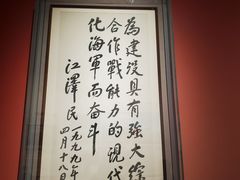 為建設具有強大綜
合作戰能力的現代
化海軍而奮斗
江澤民 一九九九年四月十八日